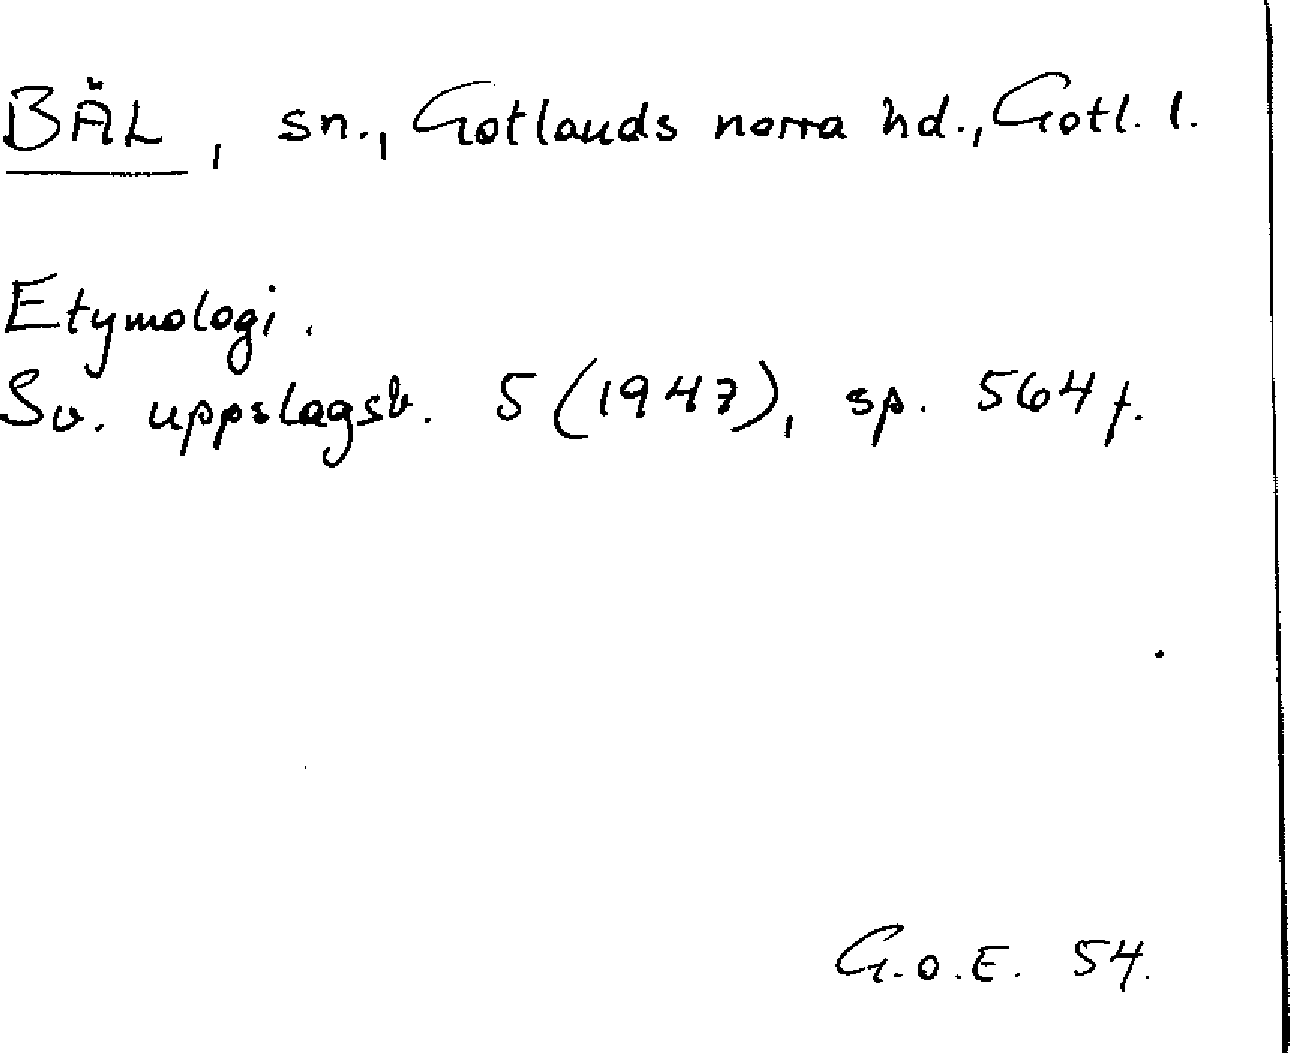 BÄL, sn., Gotlands norra hd., Gotl. l.
Etymologi.
Sv. uppslagsb. 5 (1947), sp. 564 f.
G.O.E. 54.